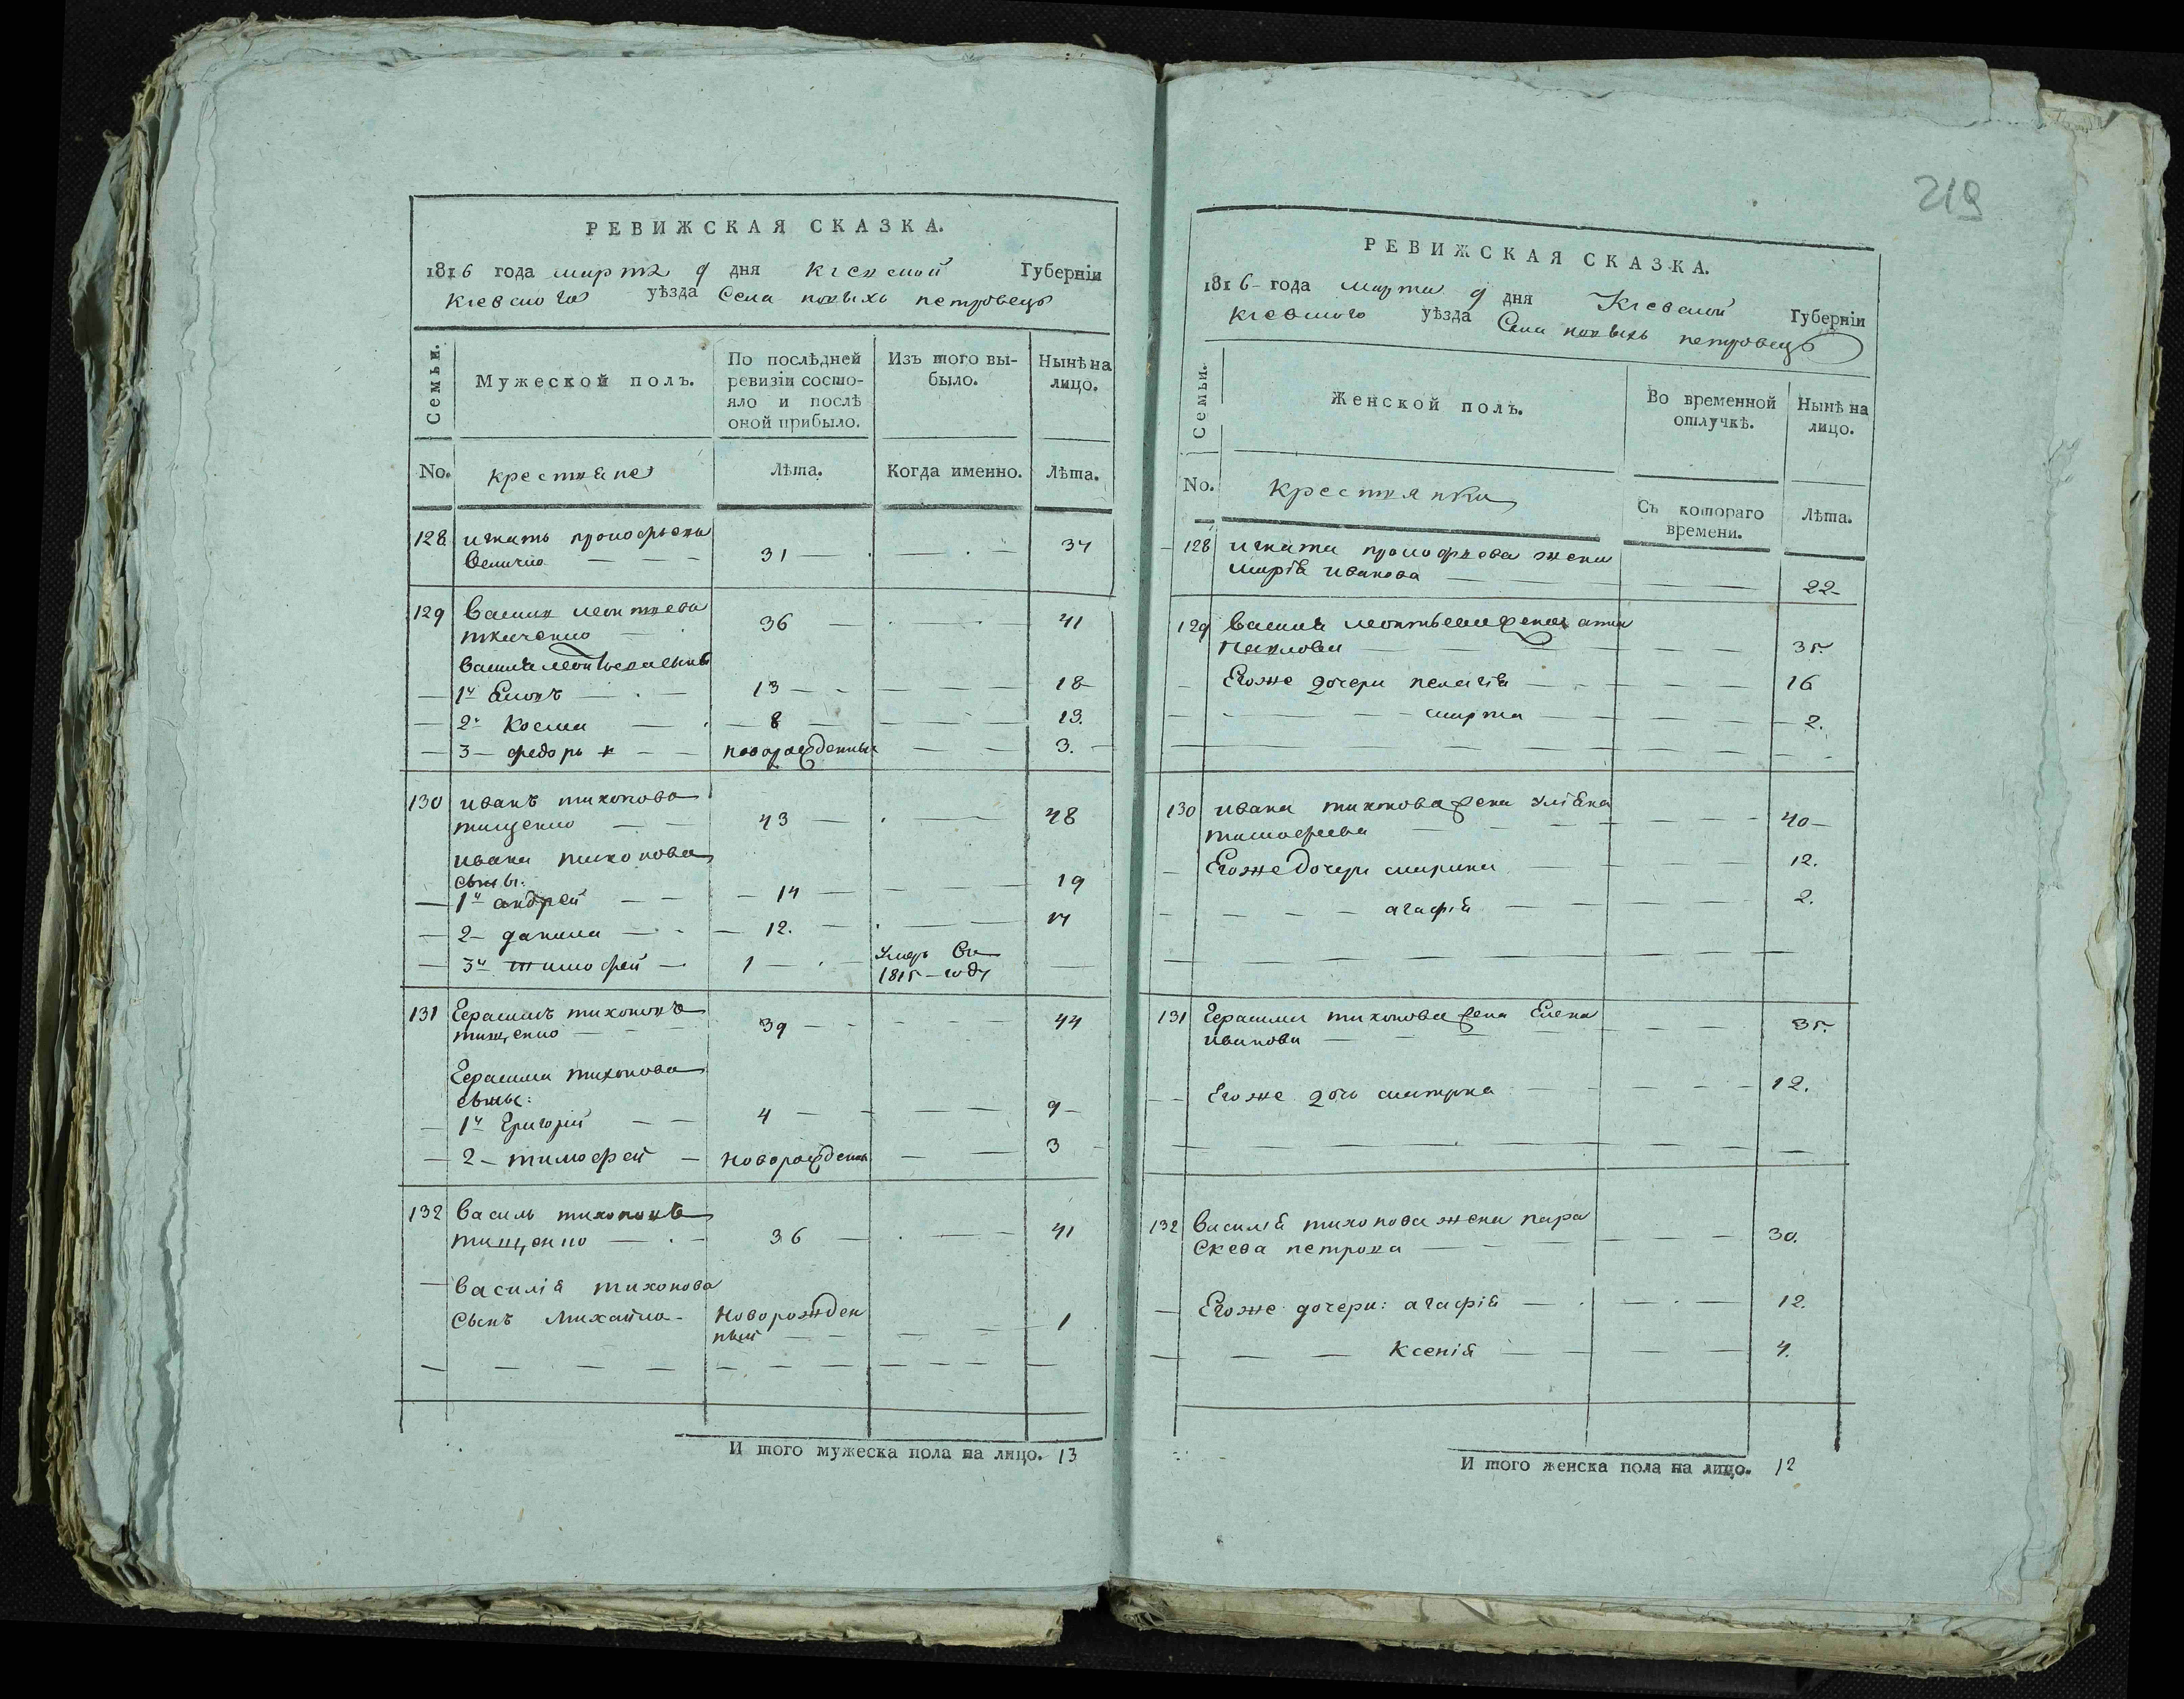 219
РЕВИЖСКАЯ СКАЗКА.
1816 года марта 9 дня Кіевской Губерніи
Кіевского уѣзда Села новыхъ петровецъ
Семьи. Мужеской полъ. По послѣдней ревизіи состояло и послѣ оной прибыло. Изъ того выбыло. Нынѣ на лицо.
No. крестяне Лѣта. Когда именно. Лѣта.
128 игнатъ
31 — — —
129 василь леонтиева
36 — — — 41
василя
— 1й — 13 — — 18
— 2й косма — — 8 — — 13.
— 3 — федоръ — — новорожденный — — 3. —
130 иванъ тихонова
тищенко — — 43 — — 48
ивана тихонова
сыны:
— 1й андрей — — 14 — — 19
— 2 — данила — — 12. — —
— 3й тимофей — 1 — — Умеръ Въ
1815 — году
131 Герасимъ тихоновъ
тищенко — — 39 — — — 44
Герасима тихонова
сыны:
— 1й Григорій — — 4 — — — 9 —
— 2 — тимофей — новорожденный — — 3
132 василь тихоновъ
тищенко — — 36 — — — 41
— василія тихонова
сынъ Михайло — Новорожден
ный — — — — 1
И того мужеска пола на лицо. 13
РЕВИЖСКАЯ СКАЗКА.
1816 года марта 9 дня Кіевской Губерніи
Кіевского уѣзда Села новыхъ петровецъ
Семьи. Женской полъ. Во временной отлучкѣ. Нынѣ на лицо.
No. крестянки Съ котораго времени. Лѣта.
128 игната жена
марія иванова — — 22
129 василя жена анна
павлова — — — 35.
— Егоже дочери пелагія — — 16
— — — марта — — 2.
130 ивана тихонова жена улияна
тимофеева — — — 40 —
— Егоже дочери марина — — 12.
— — — агафія — — 2.
131 Герасима тихонова жена Елена
иванова — — — 35.
— Егоже дочь — — 12.
132 василія тихонова жена пара
скева петрова — — — 30.
— Егоже дочери: агафія — — 12.
— — — Ксенія — — 4.
И того женска пола на лицо. 12